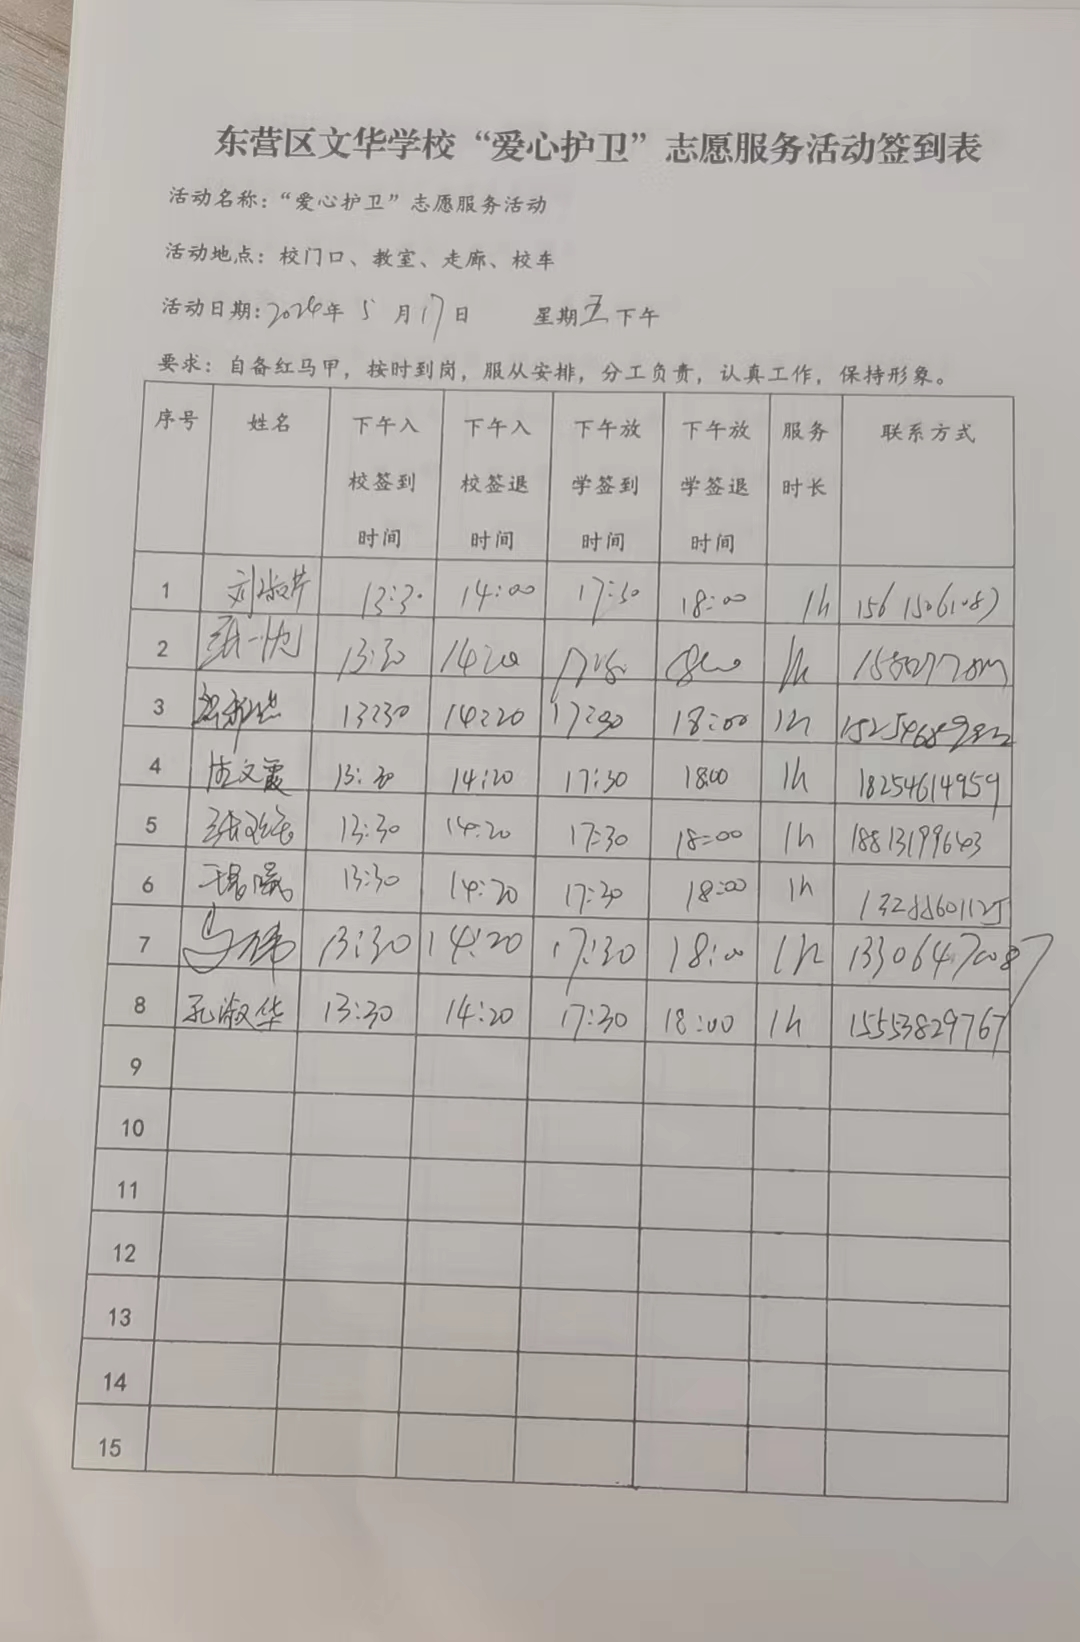 东营区文华学校“爱心护卫”志愿服务活动签到表
活动名称:“爱心护卫”志愿服务活动
活动地点:校门口、教室、走廊、校车
活动日期:2024年 5 月17日 星期五下午
要求:自备红马甲,按时到岗,服从安排,分工负责,认真工作,保持形象。
序号 姓名 下午入校签到时间 下午入校签退时间 下午放学签到时间 下午放学签退时间 服务时长 联系方式
1 刘淑芹 13:30 14:00 17:30 18:00 1h
2 13:30 14:20 1h
3 13:30 14:20 17:30 18:00 1h
4 文霞 13:30 14:20 17:30 18:00 1h 18254614959
5 13:30 14:20 17:30 18:00 1h 18813199643
6 13:30 14:20 17:30 18:00 1h
7 马伟 13:30 14:20 17:30 18:00 1h 13306470087
8 孔淑华 13:30 14:20 17:30 18:00 1h 15553829767
9
10
11
12
13
14
15